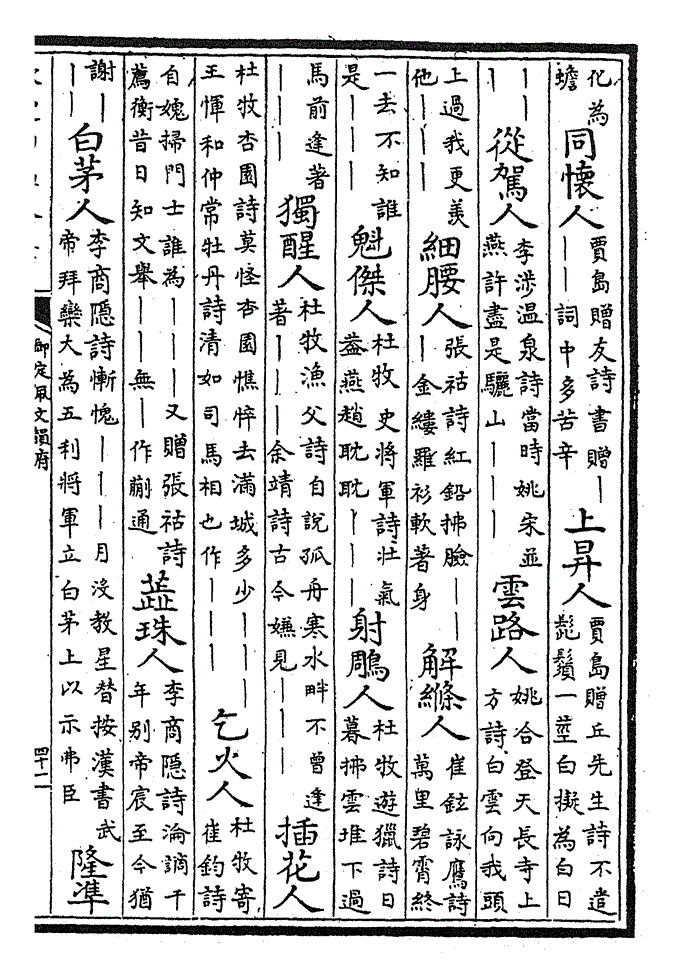 化為蟾 同懷人 賈島贈友詩書贈｜｜｜詞中多苦辛 上昇人 賈島贈丘先生詩不遣髭鬚一莖白擬為白日
｜｜｜ 從駕人 李涉溫泉詩當時姚宋並燕許盡是驪山｜｜｜ 雲路人 姚合登天長寺上方詩白雲向我頭
上過我更羨他｜｜｜ 細腰人 張祜詩紅鉛拂臉｜｜｜金縷羅衫軟著身 解絛人 崔鉉詠鷹詩萬里碧霄終
一去不知誰是｜｜｜ 魁傑人 杜牧史將軍詩壯氣蓋燕趙耽耽｜｜｜ 射鵰人 杜牧遊獵詩日暮拂雲堆下過
馬前逢著｜｜｜ 獨醒人 杜牧漁父詩自說孤舟寒水畔不曾逢著｜｜｜余靖詩古今嫌見｜｜｜ 插花人
杜牧杏園詩莫怪杏園憔悴去滿城多少｜｜｜王惲和仲常牡丹詩清如司馬相也作｜｜｜ 乞火人 杜牧寄崔鈞詩
自媿掃門士誰為｜｜｜又贈張祜詩薦衡昔日知文舉｜｜｜無｜作蒯通 蕋珠人 李商隱詩淪謫千年別帝宸至今猶
謝｜｜｜ 白茅人 李商隱詩慚愧｜｜｜月沒教星替按漢書武帝拜欒大為五利將軍立白茅上以示弗臣 隆準
御定佩文韻府
四十二